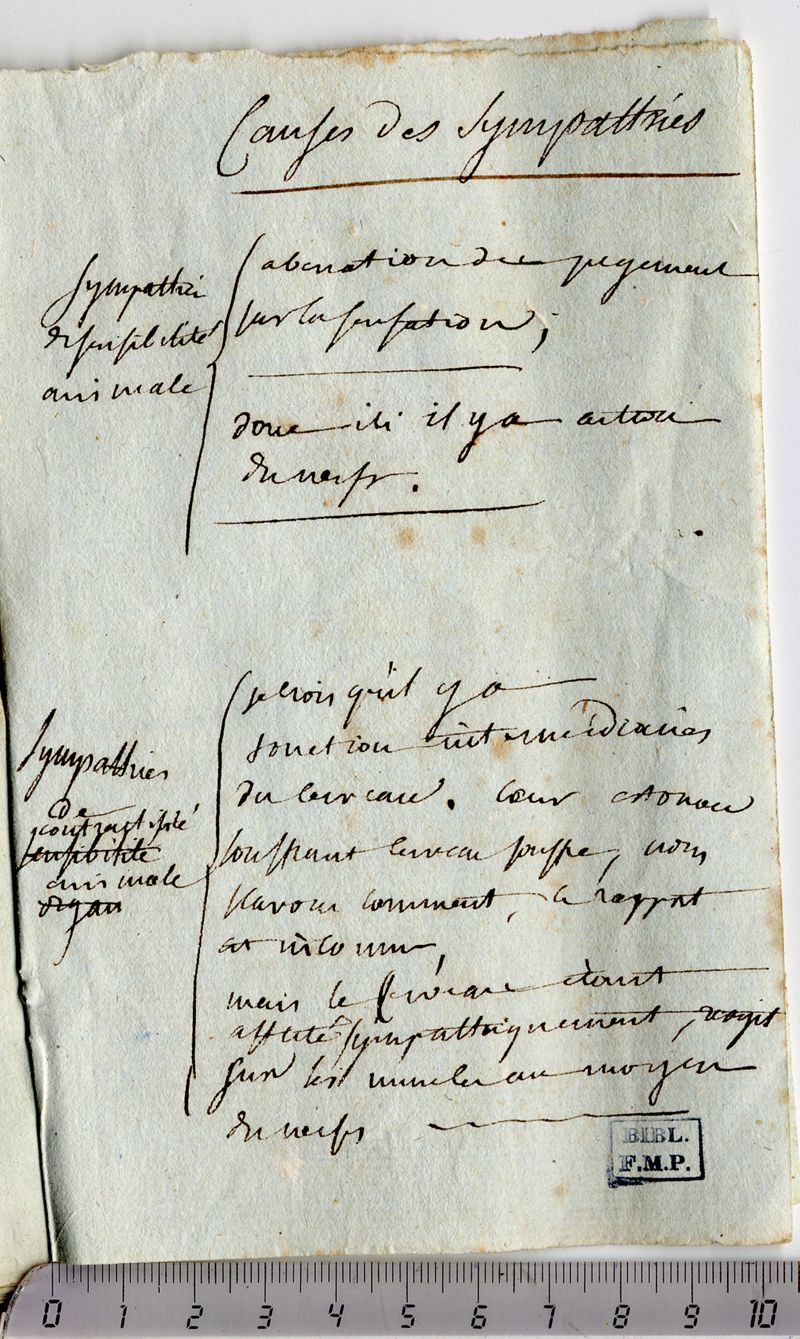 Causes des Sympathies
Sympathie
de sensibilité
animale
aberration du jugement
sur la sensation,
donc ici il y a action
du nerfs.
Sympathies
de
contractilité
sensibilité
animale
organ
je crois qu'il y a
fonction intermédiaires
du cerveau. Coeur estomac
souffrant cerveau souffre, nous
savons comment, ce rapport
est inconnu,
mais le cerveau étant
affecté sympathiquement, réagit
sur les muscles au moyen
du nerfs
BIBL.
F.M.P.
0 1 2 3 4 5 6 7 8 9 10